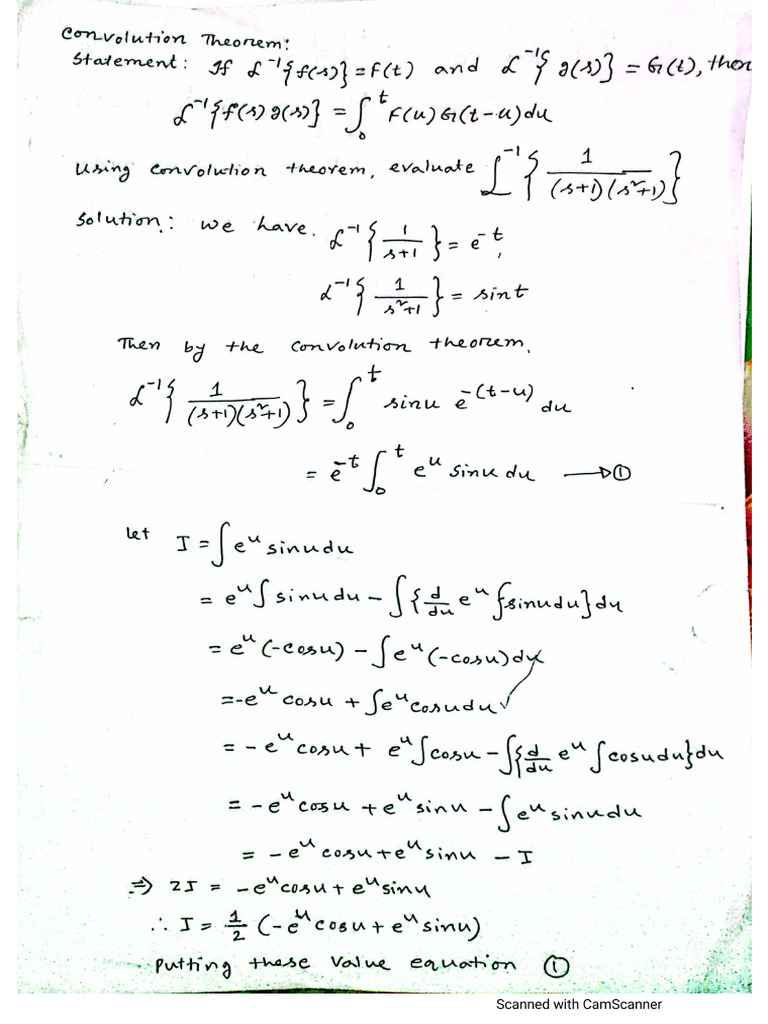 Convolution Theorem:
Statement: If ℒ⁻¹{f(s)} = F(t) and ℒ⁻¹{g(s)} = G(t), then
ℒ⁻¹{f(s) g(s)} = ∫₀ᵗ F(u) G(t-u) du
Using convolution theorem, evaluate ℒ⁻¹{1/((s+1)(s²+1))}
Solution: we have, ℒ⁻¹{1/(s+1)} = e⁻ᵗ,
ℒ⁻¹{1/(s²+1)} = sint
Then by the convolution theorem,
ℒ⁻¹{1/((s+1)(s²+1))} = ∫₀ᵗ sinu e^-(t-u) du
= e⁻ᵗ ∫₀ᵗ eᵘ sinu du → ①
let I = ∫eᵘ sinudu
= eᵘ∫sinudu - ∫{d/du eᵘ ∫sinudu}du
= eᵘ(-cosu) - ∫eᵘ(-cosu)du
= -eᵘ cosu + ∫eᵘcosudu
= -eᵘcosu + eᵘ∫cosu - ∫{d/du eᵘ ∫cosudu}du
= -eᵘcosu + eᵘ sinu - ∫eᵘsinudu
= -eᵘcosu+eᵘsinu - I
⇒ 2I = -eᵘcosu + eᵘsinu
∴ I = 1/2 (-eᵘcosu + eᵘsinu)
Putting these value equation ①
Scanned with CamScanner